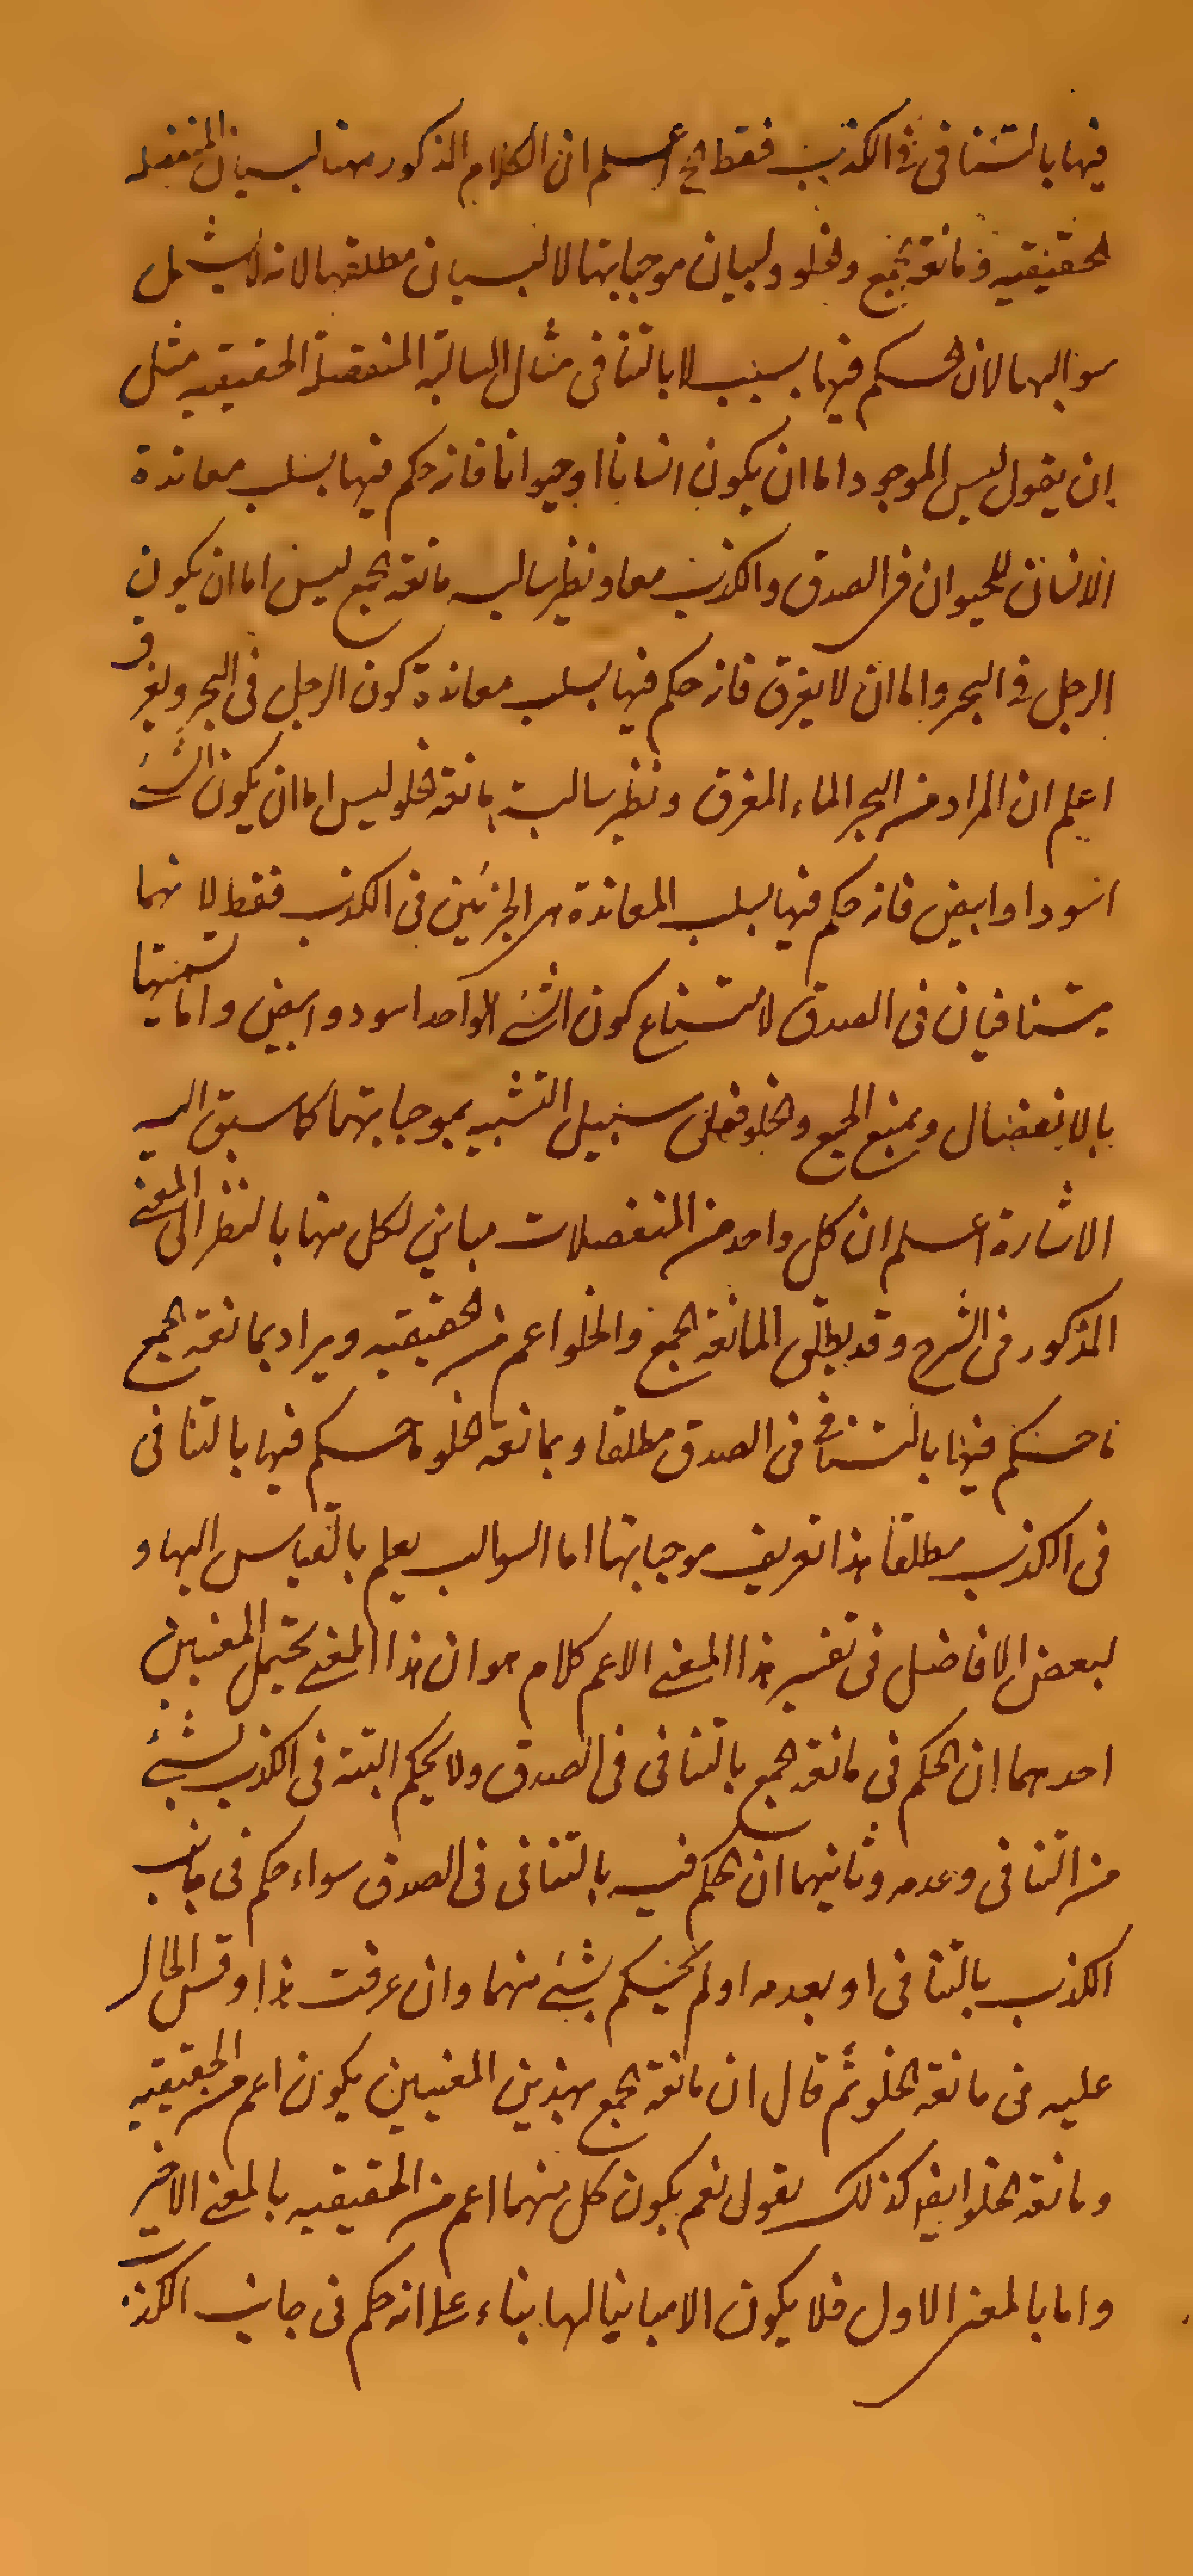 فيها بالتنافى فى الكذب فقط الخ اعلم ان الكلام المذكور ههنا لبيان المنفصلة
الحقيقيه و مانعة الجمع والخلو ولبيان موجباتها لا لبيان مطلقها لانه لا يشمل
سوالبها لان الحكم فيها بسبب لا بالتنافى مثال السالبة المنفصلة الحقيقيه مثل
ان يقول ليس الموجود اما ان يكون انسانا او حيوانا فانه حكم فيها بسلب معاندة
الانسان للحيوان فى الصدق والكذب معا ونظير سالبه مانعة الجمع ليس اما ان يكون
الرجل فى البحر واما ان لا يغرق فانه حكم فيها بسلب معاندة كون الرجل فى البحر ولغرق
اعلم ان المراد من البحر الماء المغرق ونظير سالبة مانعة الخلو ليس اما ان يكون الشئ
اسود او ابيض فانه حكم فيها بسلب المعاندة من الجزئين فى الكذب فقط لانهما
يتنافيان فى الصدق لامتناع كون الشئ الواحد اسود وابيض واما تسميتها
بالانفصال وبمنع الجمع والخلو فعلى سبيل التشبيه بموجباتهما كما سبق اليه
الاشارة اعلم ان كل واحد من المنفصلات مباين لكل منها بالنظر الى المعنى
المذكور فى الشرح وقد يطلق المانعة الجمع والخلو اعم من الحقيقيه ويراد بمانعة الجمع
ما حكم فيها بالتنافى فى الصدق مطلقا وبمانعة الخلو ما حكم فيها بالتنافى
فى الكذب مطلقا هذا تعريف موجباتها اما السوالب يعلم بالقياس اليها و
لبعض الافاضل فى تفسير هذا المعنى الاعم كلام هو ان هذا المعنى يحتمل المعنيين
احدهما ان الحكم فى مانعة الجمع بالتنافى فى الصدق ولا يحكم البتة فى الكذب بشئ
من التنافى وعدمه وثانيهما ان الحكم فيه بالتنافى فى الصدق سواء حكم فى جانب
الكذب بالتنافى او بعدمه او لم يحكم بشئ منهما وان عرفت هذا وقس الحال
عليه فى مانعة الخلو ثم قال ان مانعة الجمع بهذين المعنيين يكون اعم من الحقيقيه
ومانعة الخلو ايضا كذلك يقول نعم يكون كل منهما اعم من الحقيقيه بالمعنى الاخير
واما بالمعنى الاول فلا يكون الا مباينا لها بناء على انه حكم فى جانب الكذب